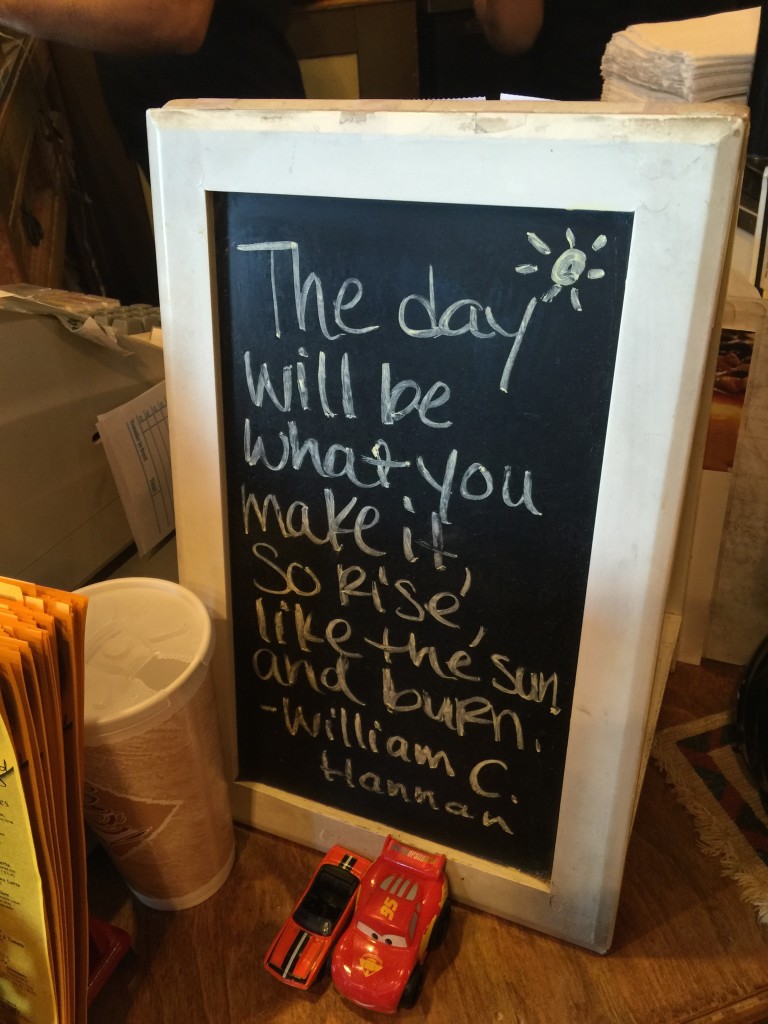 The day
will be
what you
make it,
So Rise,
like the sun
and burn.
-William C.
Hannan
95